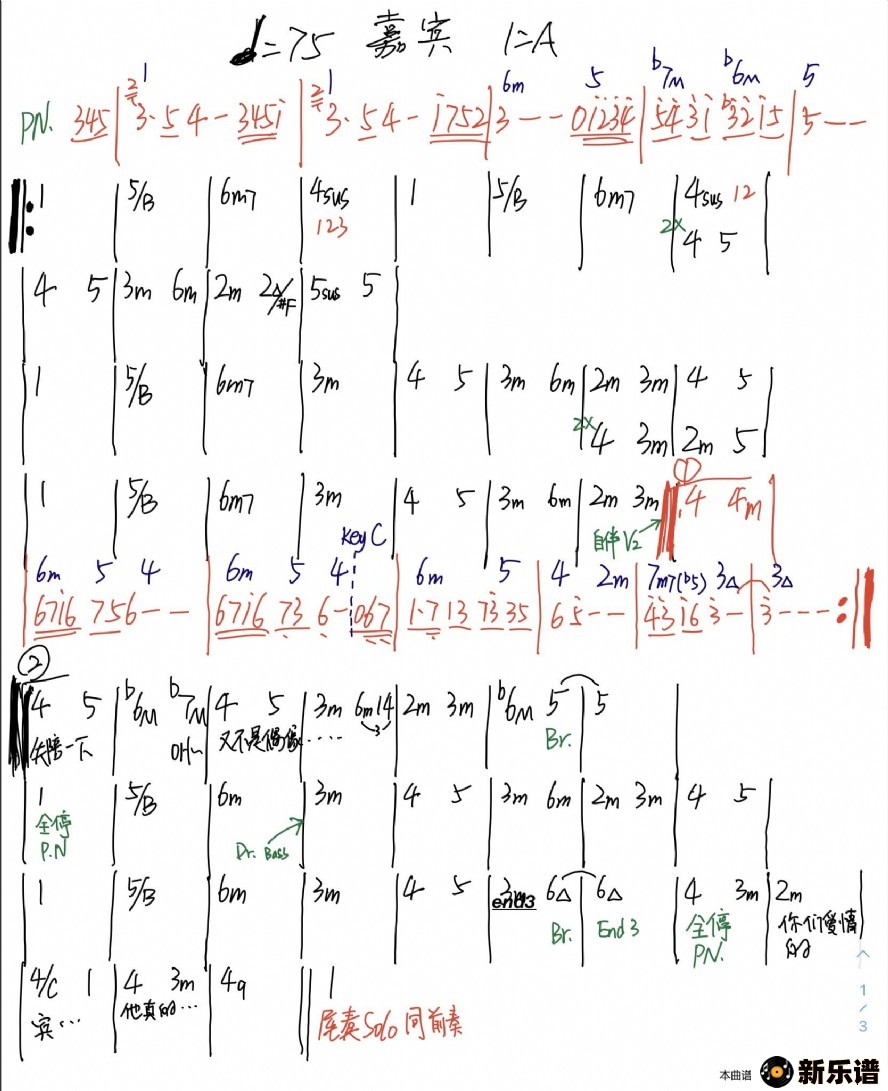 ♩=75 嘉宾 1=A
1 1 6m 5 b7M b6M 5
PN. 345 | 3· 5 4 - 3451 | 3· 5 4 - 1752 | 3 - - 01234 | 5431 3215 | 5 - -
1 | 5/B | 6m7 | 4sus | 1 | 5/B | 6m7 | 4sus 12
123 2X 4 5
4 5 | 3m 6m | 2m 2△/#F | 5sus 5
1 | 5/B | 6m7 | 3m | 4 5 | 3m 6m | 2m 3m | 4 5
2X 4 3m | 2m 5
①
1 | 5/B | 6m7 | 3m | 4 5 | 3m 6m | 2m 3m | 4 4m
自伴V2
Key C
6m 5 4 6m 5 4 6m 5 4 2m 7m7(b5) 3△ 3△
6716 756 - - | 6716 73 6 - 067 | 1·7 13 73 35 | 6 5 - - | 43 16 3 - | 3 - - - :
②
4 5 | b6M b7M | 4 5 | 3m 6m 14 | 2m 3m | b6M 5 | 5
失陪一下 OH~ 又不是偶像····· 3 Br.
1 | 5/B | 6m | 3m | 4 5 | 3m 6m | 2m 3m | 4 5
全停
P.N Dr. Bass
1 | 5/B | 6m | 3m | 4 5 | 3m 6△ | 6△ | 4 3m | 2m
end3
Br. End 3 全停 你们爱情
PN. 的
4/C 1 | 4 3m | 4 | 1
宾··· 他真的··· 尾奏Solo同前奏
1/3
本曲谱 新乐谱